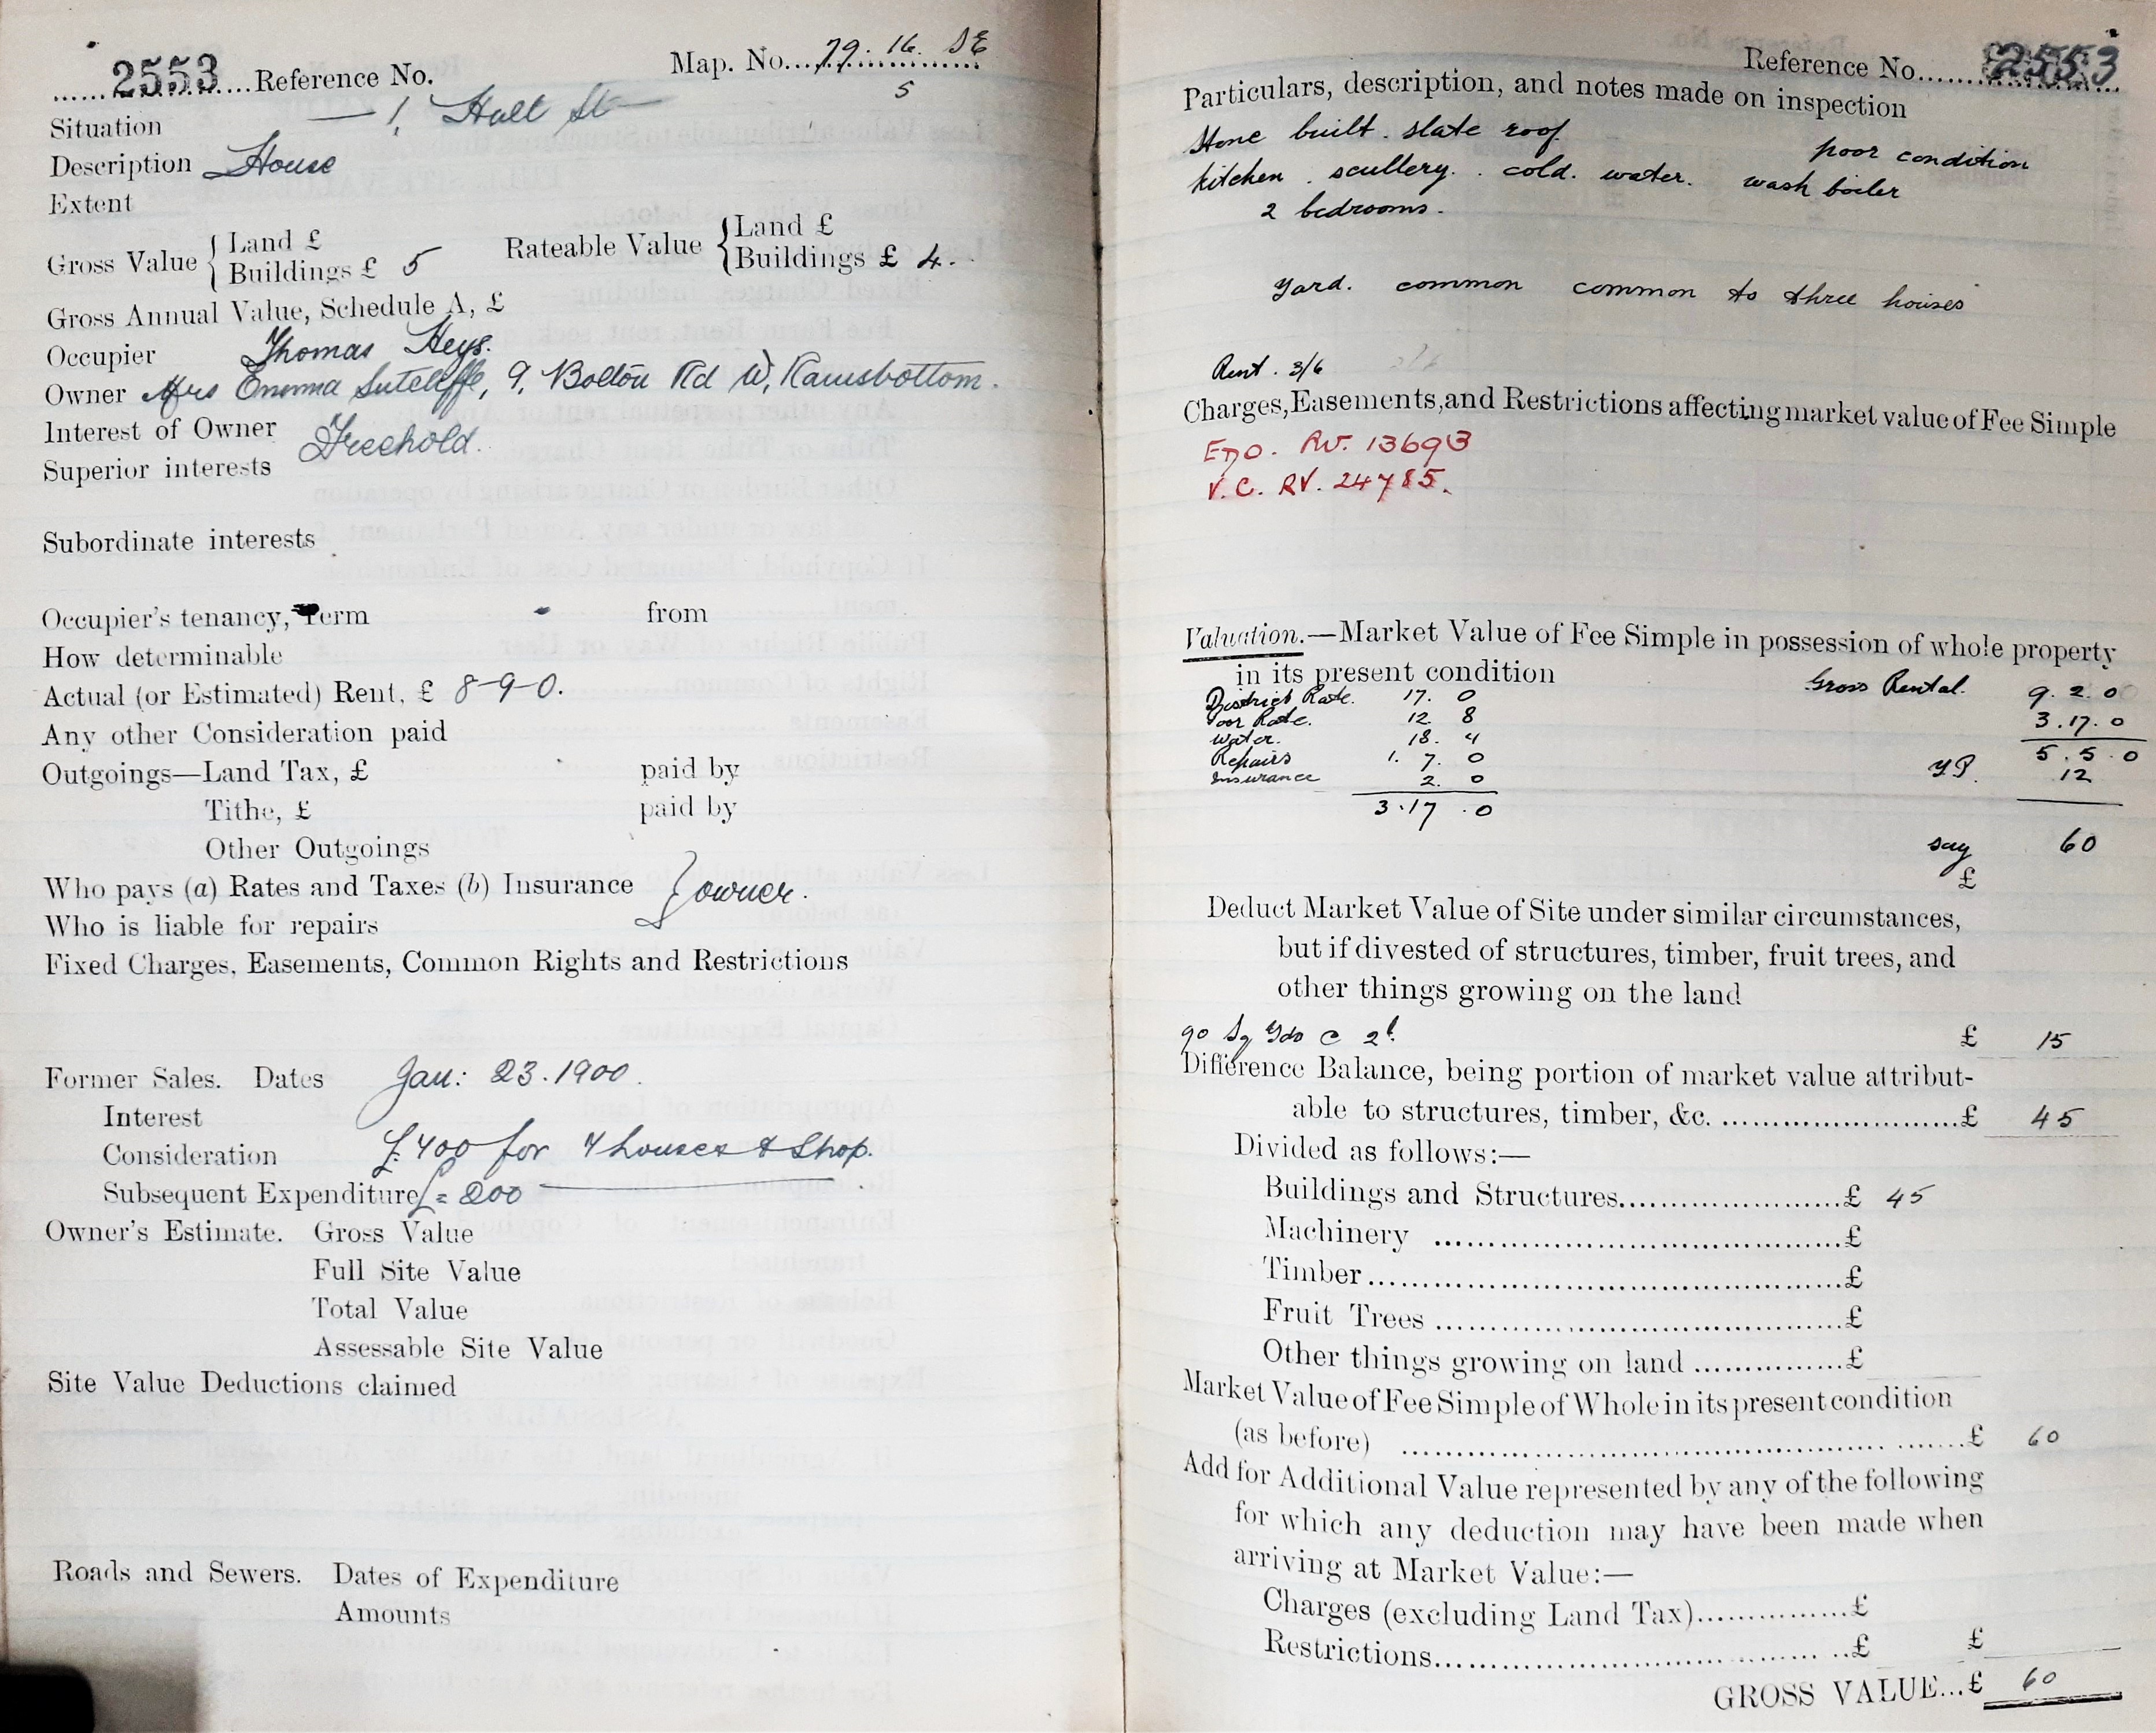 2553 Reference No.
Map. No. 79. 16. SE
5
Situation 1, Holt St
Description House
Extent
Gross Value { Land £
Buildings £ 5
Rateable Value { Land £
Buildings £ 4.
Gross Annual Value, Schedule A, £
Occupier Thomas Heys.
Owner Mrs Emma Sutcliffe, 9, Bolton Rd W, Ramsbottom.
Interest of Owner Freehold.
Superior interests
Subordinate interests
Occupier's tenancy, Term from
How determinable
Actual (or Estimated) Rent, £ 8-9-0.
Any other Consideration paid
Outgoings—Land Tax, £ paid by
Tithe, £ paid by
Other Outgoings
Who pays (a) Rates and Taxes (b) Insurance } owner.
Who is liable for repairs
Fixed Charges, Easements, Common Rights and Restrictions
Former Sales. Dates Jan: 23. 1900.
Interest
Consideration £400 for 4 houses & Shop.
Subsequent Expenditure £ = 200
Owner's Estimate. Gross Value
Full Site Value
Total Value
Assessable Site Value
Site Value Deductions claimed
Roads and Sewers. Dates of Expenditure
Amounts
Reference No. 2553
Particulars, description, and notes made on inspection
Stone built. slate roof.
poor condition
kitchen. scullery. cold. water. wash boiler
2 bedrooms.
Yard. common common to three houses
Rent. 3/6
Charges, Easements, and Restrictions affecting market value of Fee Simple
RV. 13693
V.C. RV. 24785.
Valuation.—Market Value of Fee Simple in possession of whole property
in its present condition
Gross Rental. 9. 2. 0
District Rate. 17. 0
Poor Rate. 12 8
3. 17. 0
Water. 18. 4
5. 5. 0
Repairs 1. 7. 0
YP. 12
Insurance 2. 0
3. 17. 0
say 60
£
Deduct Market Value of Site under similar circumstances,
but if divested of structures, timber, fruit trees, and
other things growing on the land
90 Sq Yds @ 2/. £ 15
Difference Balance, being portion of market value attribut-
able to structures, timber, &c. £ 45
Divided as follows:—
Buildings and Structures £ 45
Machinery £
Timber £
Fruit Trees £
Other things growing on land £
Market Value of Fee Simple of Whole in its present condition
(as before) £ 60
Add for Additional Value represented by any of the following
for which any deduction may have been made when
arriving at Market Value:—
Charges (excluding Land Tax) £
Restrictions £ £
GROSS VALUE... £ 60